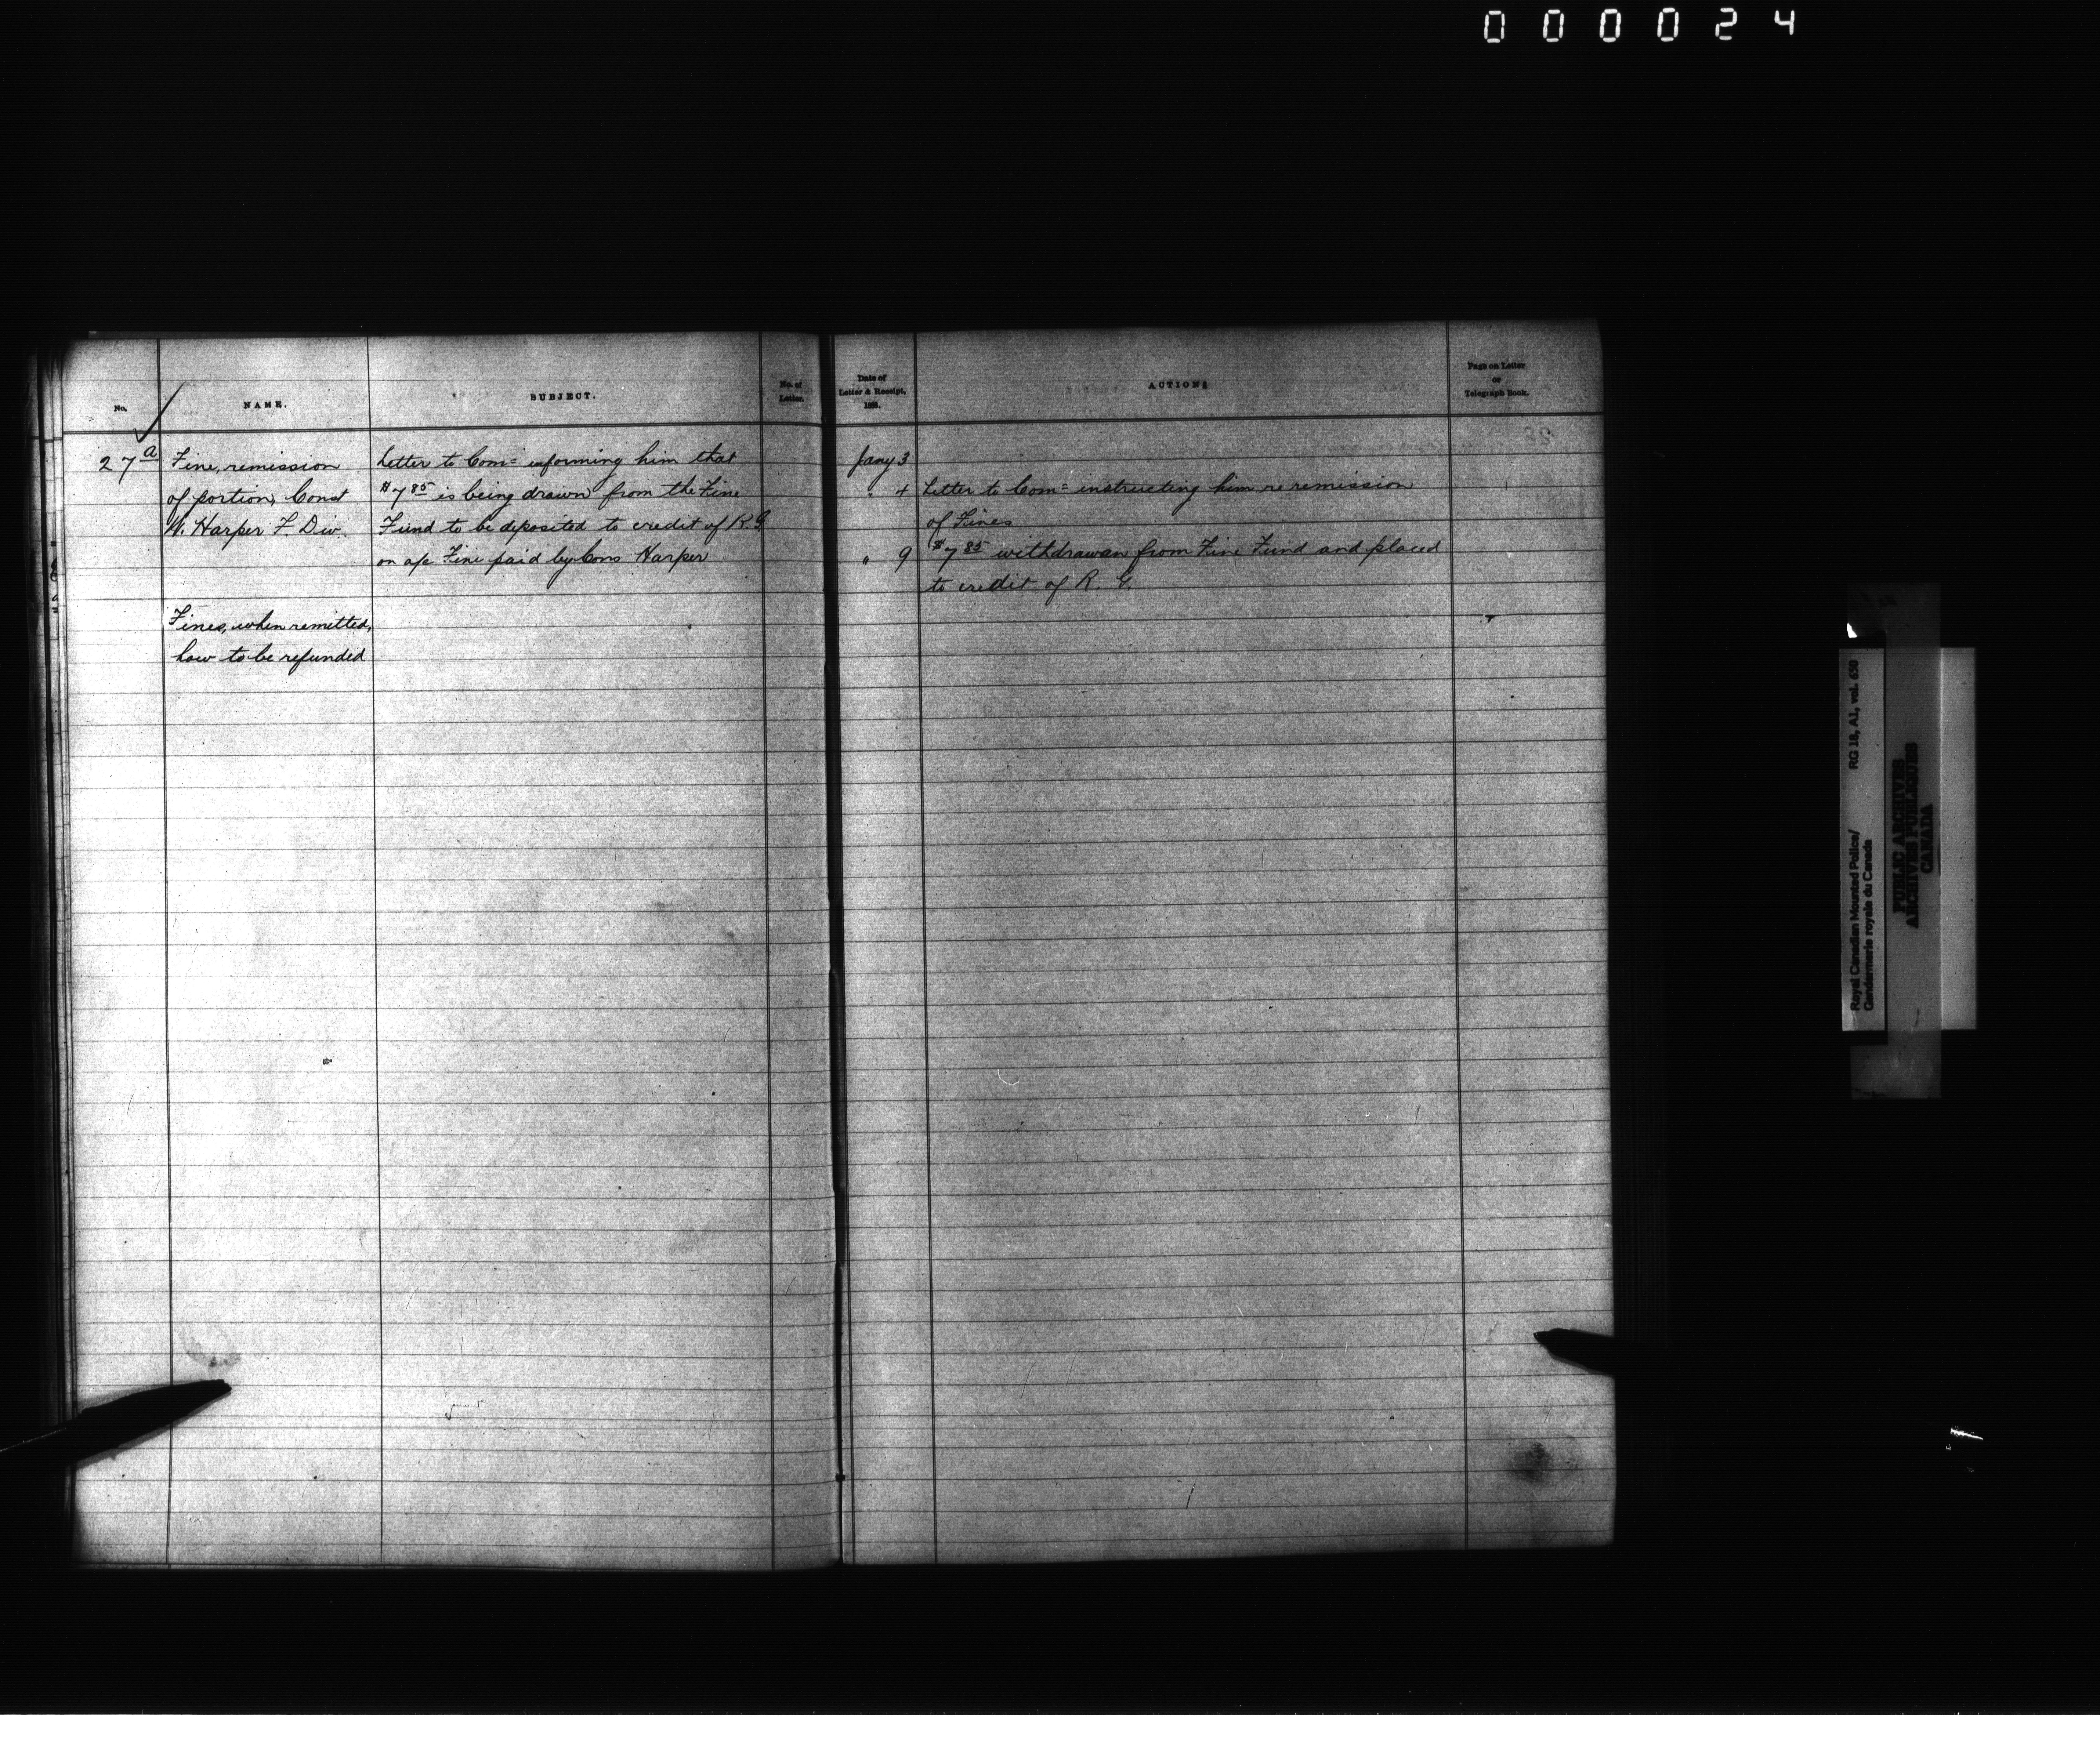 000024
No.
NAME.
SUBJECT.
No. of
Letter.
Date of
Letter & Receipt,
188.
ACTION:
Page on Letter
or
Telegraph Book.
27 a
Fine, remission
of portion, Const
W. Harper F. Div.
Fines, when remitted,
how to be refunded
Letter to Comr informing him that
$7 85 is being drawn from the Fine
Fund to be deposited to credit of R.G.
on a/c Fine paid by Cons Harper
Jany 3
" 4 Letter to Comr instructing him re remission
of Fines
" 9 $7 85 withdrawan from Fine Fund and placed
to credit of R. G.
Royal Canadian Mounted Police/ RG 18, A1, vol. 650
Gendarmerie royale du Canada
PUBLIC ARCHIVES
ARCHIVES PUBLIQUES
CANADA